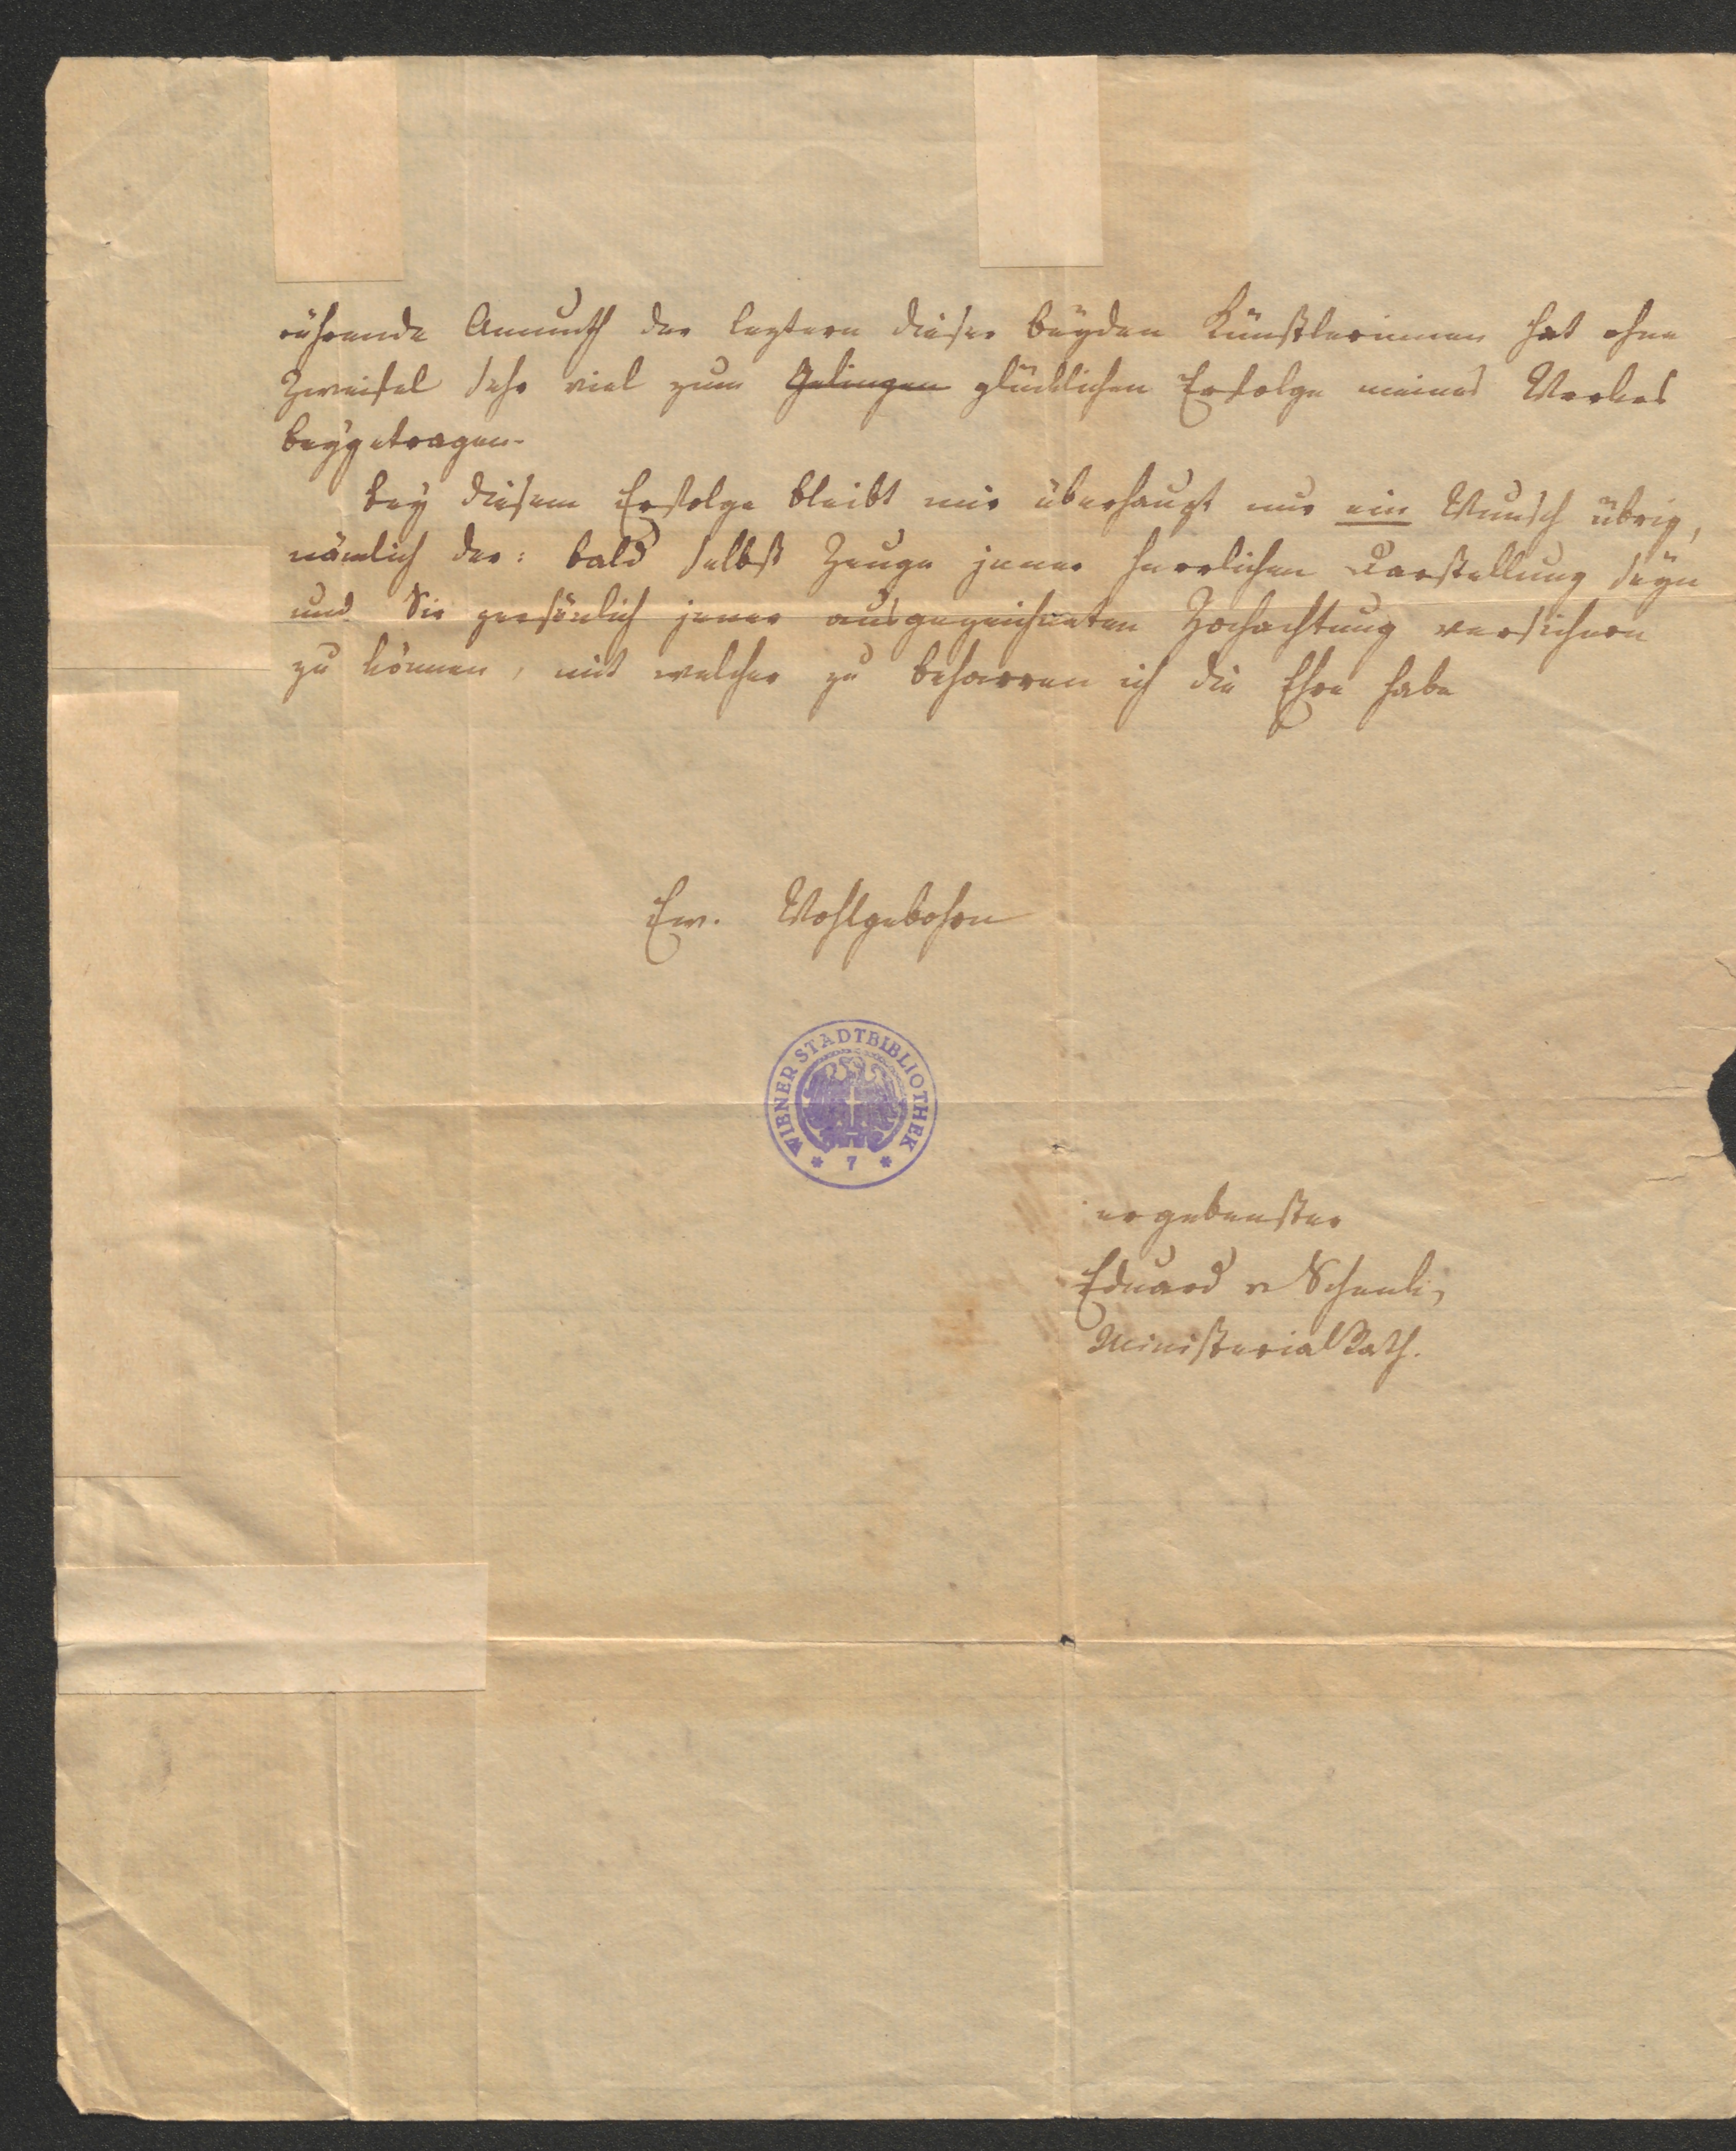 rührende Anmuth der leztern dieser beyden Künstlerinnen hat ohne
Zweifel sehr viel zum Gelingen glücklichen Erfolge meines Werkes
beygetragen.
Bey diesem Erfolge bleibt mir überhaupt nur ein Wunsch übrig,
nämlich der: bald selbst Zeuge jener herrlichen Darstellung seyn
und Sie persönlich jener ausgezeichneten Hochachtung versichern
zu können, mit welcher zu beharren ich die Ehre habe
Ew. Wohlgebohrn
WIENER STADTBIBLIOTHEK
* 7 *
ergebenster
Eduard v Schenk,
MinisterialRath.